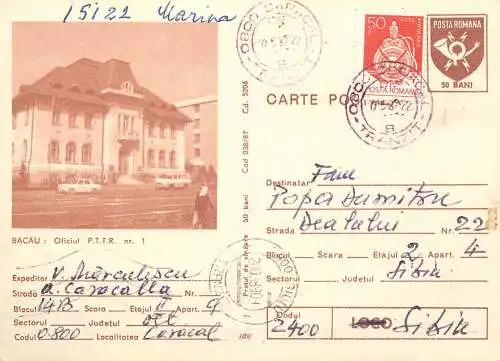 15122 Marina
0800 CARACAL
TRANZIT
50 BANI
POSTA ROMANA
POSTA ROMANA
50 BANI
CARTE PO
0800 CARACAL
TRANZIT
Cod 038/87 Cd. 5206
Prețul de vînzare 50 bani
BACĂU : Oficiul P.T.T.R. nr. 1
Expeditor V. Mărculescu
Strada A. Caracalla
Blocul 14B Scara Etajul II Apart. 9
Sectorul Județul Olt
Codul 0800 Localitatea Caracal
Destinatar Fam
Popa Dumitru
Strada Dealului Nr. 22
Blocul Scara Etajul 2 Apart. 4
Sectorul Județul Sibiu
Codul
2400 LOCO Sibiu